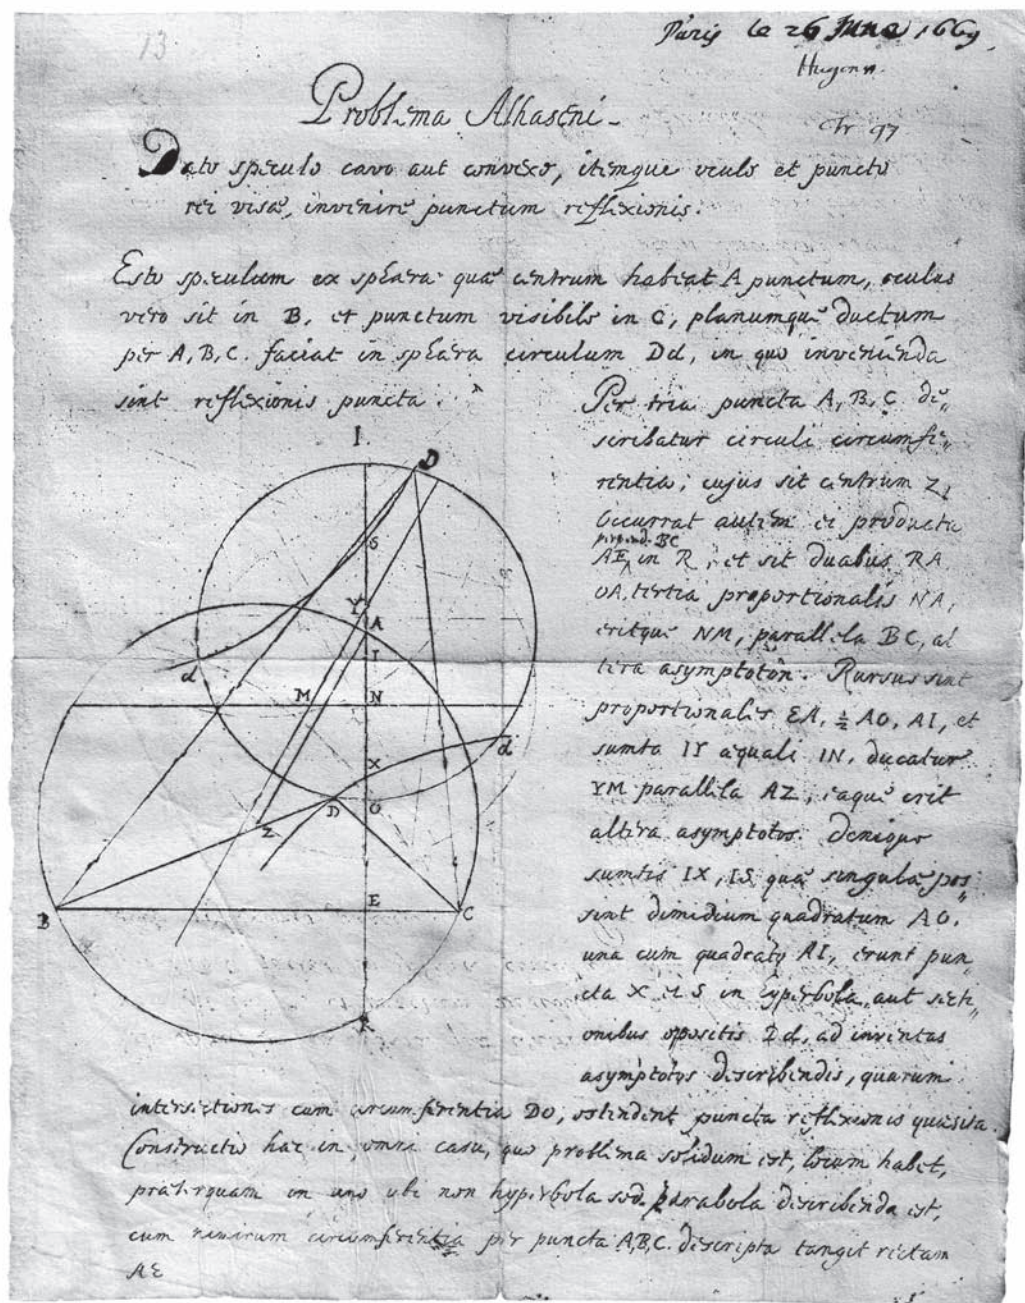 13
Paris le 26 June 1669.
Hugens.
Problema Alhaseni.
Dato speculo cavo aut convexo, itemque oculo et puncto
rei visæ, invenire punctum reflexionis.
Esto speculum ex sphæra quæ centrum habeat A punctum, oculus
vero sit in B, et punctum visibile in C, planumque ductum
per A, B, C. faciat in sphæra circulum Dd, in quo invenienda
sint reflexionis puncta.
Per tria puncta A, B, C de„
scribatur circuli circumfe„
rentia; cujus sit centrum Z,
Occurrat autem ei producta
perpend. BC
AE in R, et sit duabus RA
OA, tertia proportionalis NA,
eritque NM, parallela BC, al
tera asymptoton. Rursus sint
proportionales EA, ½ AO, AI, et
sumta IY æquali IN, ducatur
YM parallela AZ, eaque erit
altera asymptotos. Denique
sumtis IX, IS quæ singulæ pos„
sint dimidium quadratum AO,
una cum quadrato AI, erunt pun„
cta X et S in hyperbola, aut secti„
onibus oppositis Dd, ad inventas
asymptotos describendis, quarum
intersectiones cum circumferentia DO, ostendent puncta reflexionis quæsita.
Constructio hæc in omni casu, quo problema solidum est, locum habet,
præterquam in uno ubi non hyperbola sed parabola describenda est,
cum nimirum circumferentia per puncta A, B, C. descripta tangit rectam
AE
I
D
S
Y
A
I
d
M
N
d
X
D
O
Z
B
E
C
R